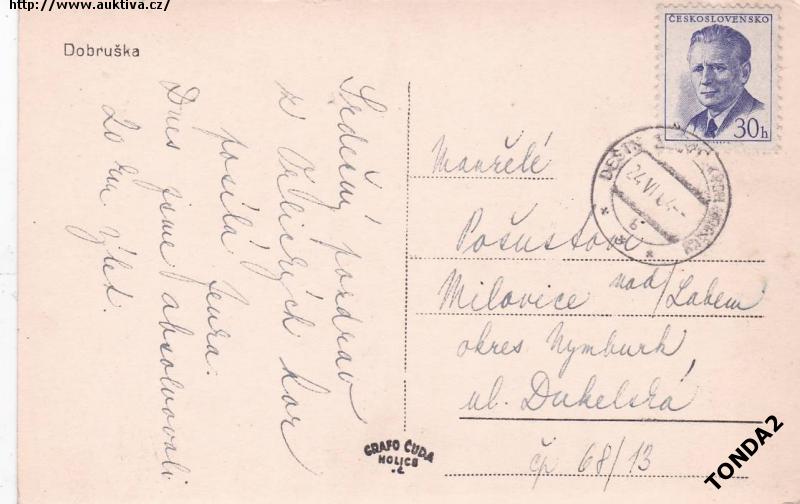 http://www.auktiva.cz/
Dobruška
Srdečný pozdrav
z Orlických hor
posílá Jenka.
Dnes jsme absolvovali
20 km výlet.
ČESKOSLOVENSKO
30h
24.VI.64
6
Manželé
Pošustovi
Milovice nad/Labem
okres Nymburk
ul. Dukelská
čp 68/13
GRAFO ČUDA
HOLICE
TONDA2